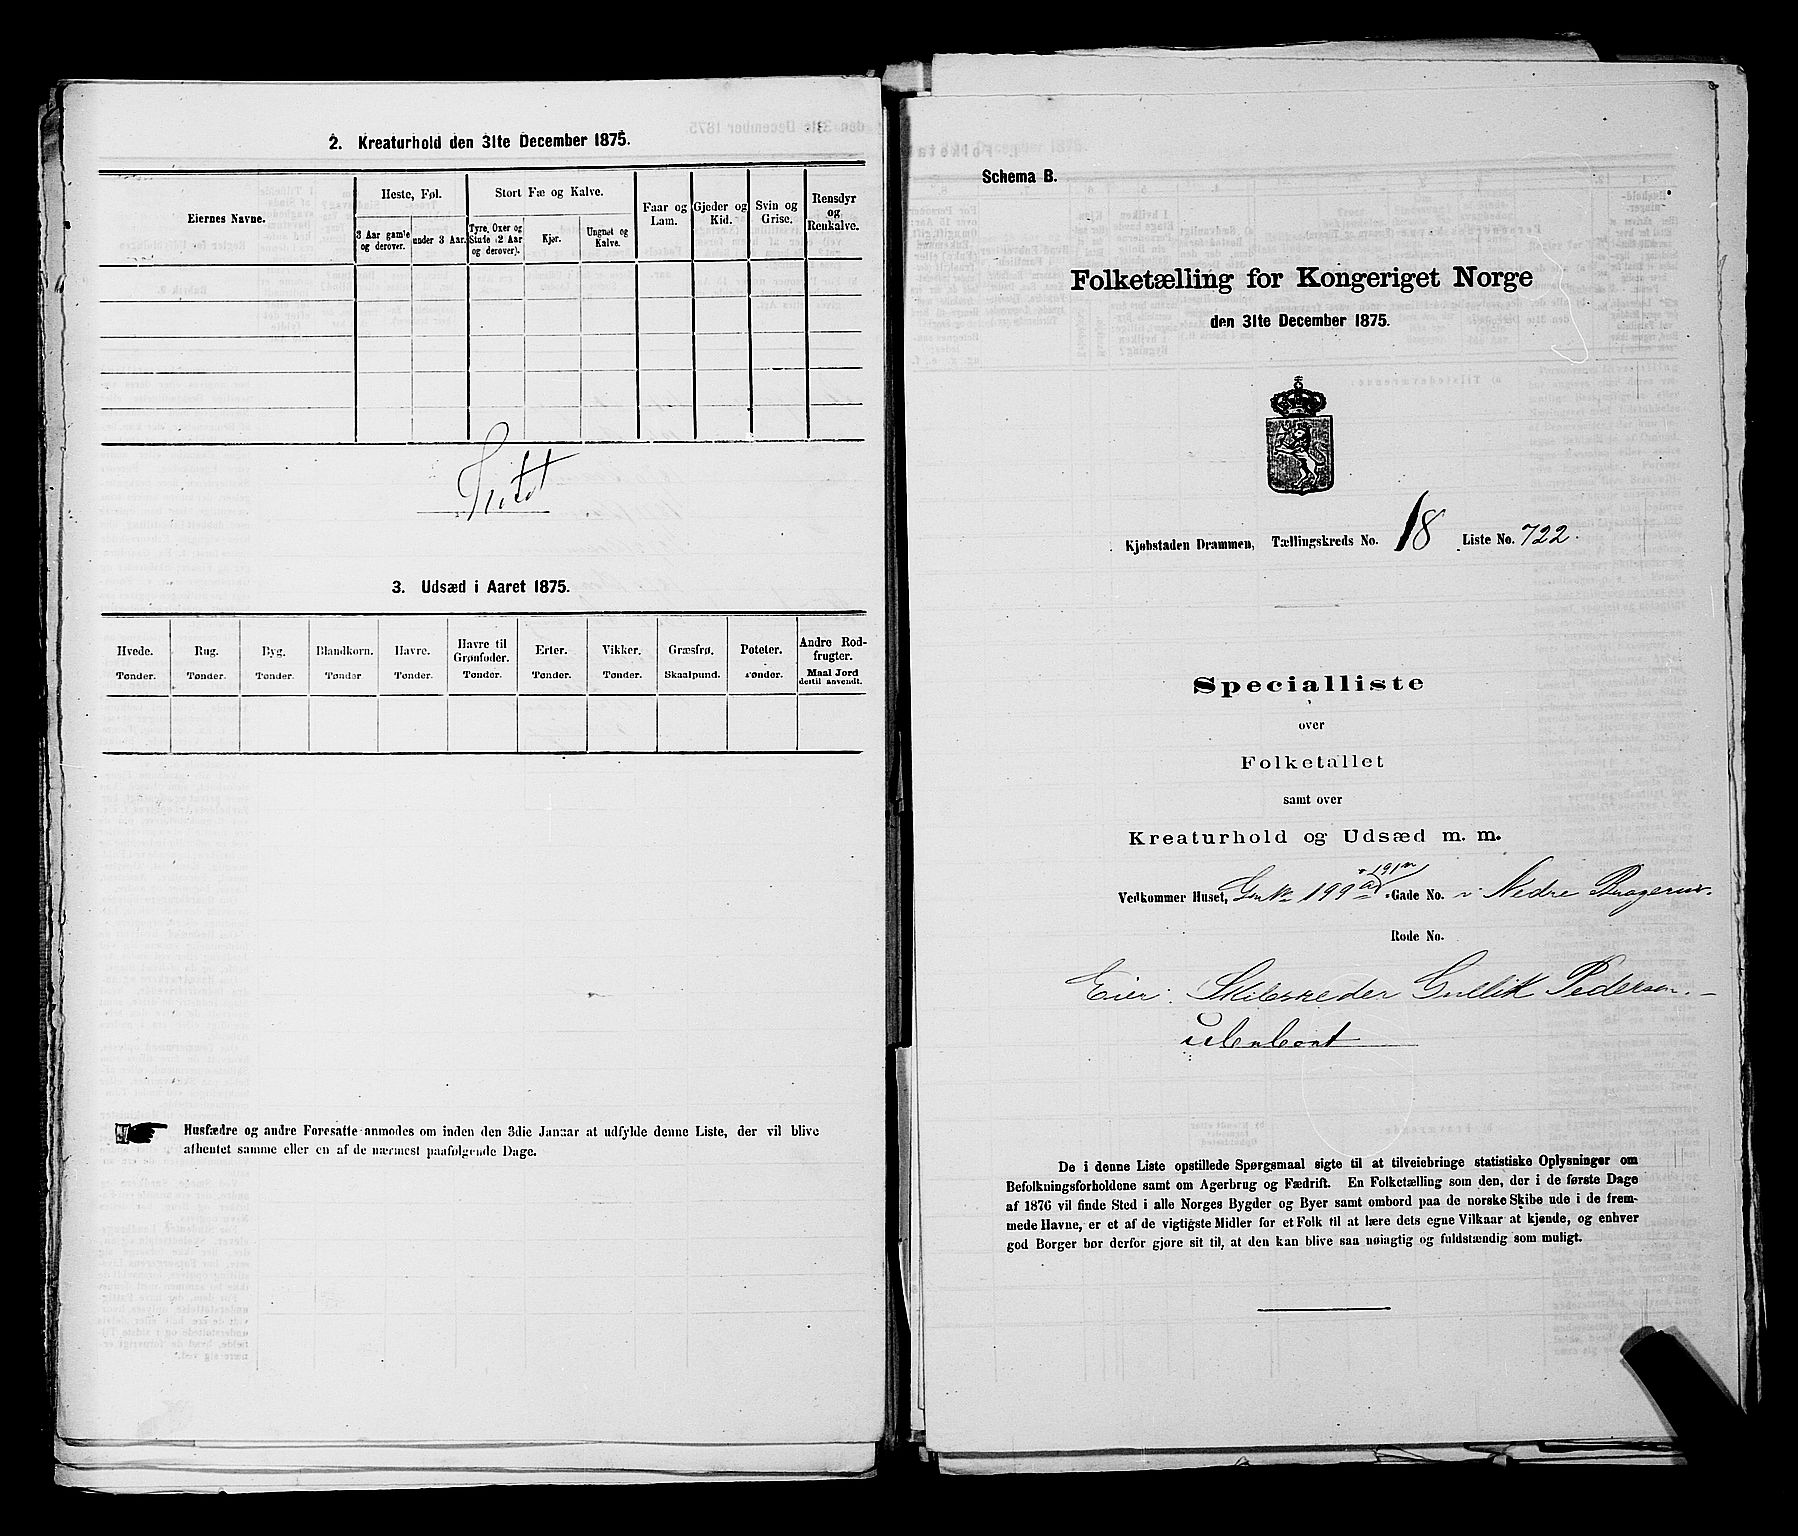 2. Kreaturhold den 31te December 1875.
Eiernes Navne.
Heste, Føl.
Stort Fæ og Kalve.
Faar og Lam.
Gjeder og Kid.
Svin og Grise.
Rensdyr og Renkalve.
3 Aar gamle og derover.
under 3 Aar.
Tyre, Oxer og Stute (2 Aar og derover).
Kjør.
Ungnøt og Kalve.
3. Udsæd i Aaret 1875.
Hvede. Rug. Byg. Blandkorn. Havre. Havre til Grønfoder. Erter. Vikker. Græsfrø. Poteter. Andre Rodfrugter.
Tønder. Tønder. Tønder. Tønder Tønder. Tønder. Tønder. Tønder. Skaalpund. Tønder. Maal Jord dertil anvendt.
Husfædre og andre Foresatte anmodes om inden den 3die Januar at udfylde denne Liste, der vil blive
afhentet samme eller en af de nærmest paafølgende Dage.
Schema B.
Folketælling for Kongeriget Norge
den 31te December 1875.
Kjøbstaden Drammen, Tællingskreds No. 18 Liste No. 722.
Specialliste
over
Folketallet
samt over
Kreaturhold og Udsæd m. m.
Vedkommer Huset, 199a Gade No. Nedre Bragernæs.
Rode No.
Eier: Skibsreder Gullik Pedersen.
ubeboet
De i denne Liste opstillede Spørgsmaal sigte til at tilveiebringe statistiske Oplysninger om
Befolkningsforholdene samt om Agerbrug og Fædrift. En Folketælling som den, der i de første Dage
af 1876 vil finde Sted i alle Norges Bygder og Byer samt ombord paa de norske Skibe ude i de frem-
mede Havne, er et af de vigtigste Midler for et Folk til at lære dets egne Vilkaar at kjende, og enhver
god Borger bør derfor gjøre sit til, at den kan blive saa nøiagtig og fuldstændig som muligt.